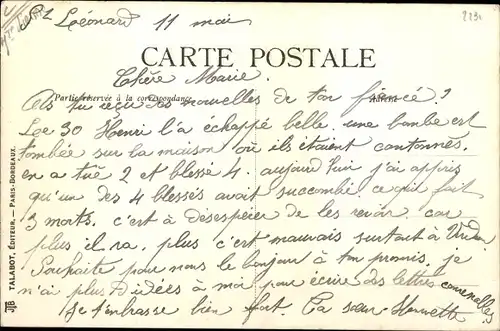 St Léonard 11 mai
2231
CARTE POSTALE
Chère Marie.
Partie réservée à la correspondance
As tu reçu des nouvelles de ton fiancé ?
Le 30 Henri l'a échappé belle une bombe est
tombée sur la maison où ils étaient cantonnés.
en a tué 2 et blessé 4. aujourd'hui j'ai appris
qu'un des 4 blessés avait succombé ce qui fait
3 morts. c'est à désespérer de les revoir car
plus il ra. plus c'est mauvais surtout à Verdun
Souhaite pour nous le bonjour à ton promis. je
n'ai plus d'idées à moi pour écrire des lettres convenables
Je t'embrasse bien fort. Ta sœur Henriette
TALABOT, ÉDITEUR. — PARIS-BORDEAUX.